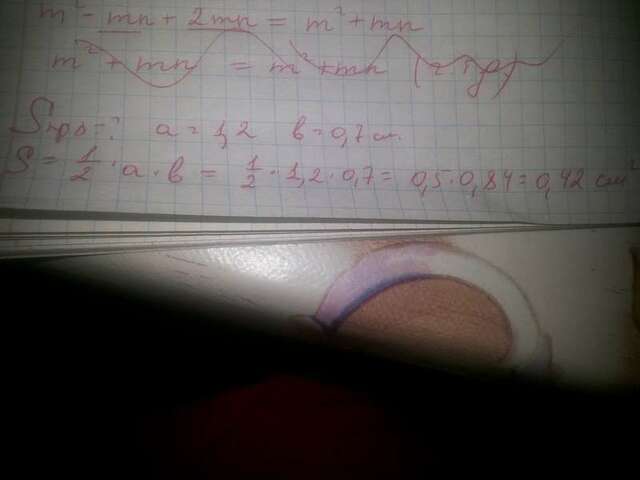 m² - mn + 2mn = m² + mn
m² + mn = m² + mn (2 гр)
Sтр - ? a = 1,2 b = 0,7 см
S = 1/2 · a · b = 1/2 · 1,2 · 0,7 = 0,5 · 0,84 = 0,42 см²